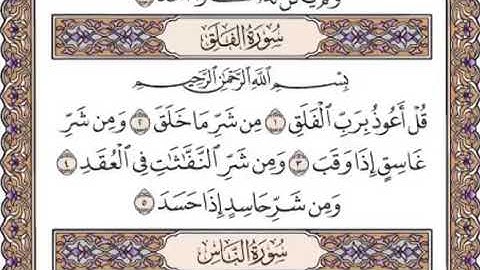 سُورَةُ الْفَلَقِ
بِسْمِ اللَّهِ الرَّحْمَٰنِ الرَّحِيمِ
قُلْ أَعُوذُ بِرَبِّ الْفَلَقِ ١ مِن شَرِّ مَا خَلَقَ ٢ وَمِن شَرِّ
غَاسِقٍ إِذَا وَقَبَ ٣ وَمِن شَرِّ النَّفَّاثَاتِ فِي الْعُقَدِ ٤
وَمِن شَرِّ حَاسِدٍ إِذَا حَسَدَ ٥
سُورَةُ النَّاسِ